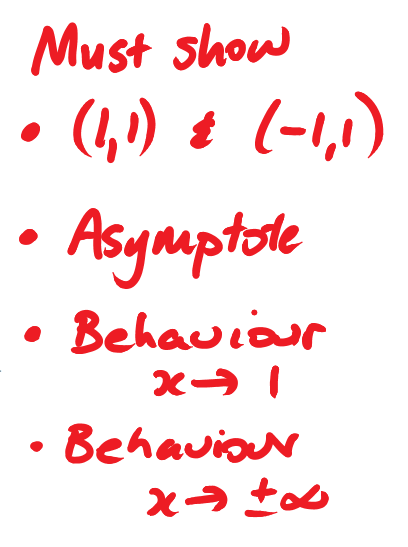 Must show
• (1,1) & (-1,1)
• Asymptote
• Behaviour
x→ 1
• Behaviour
x→ ±∞